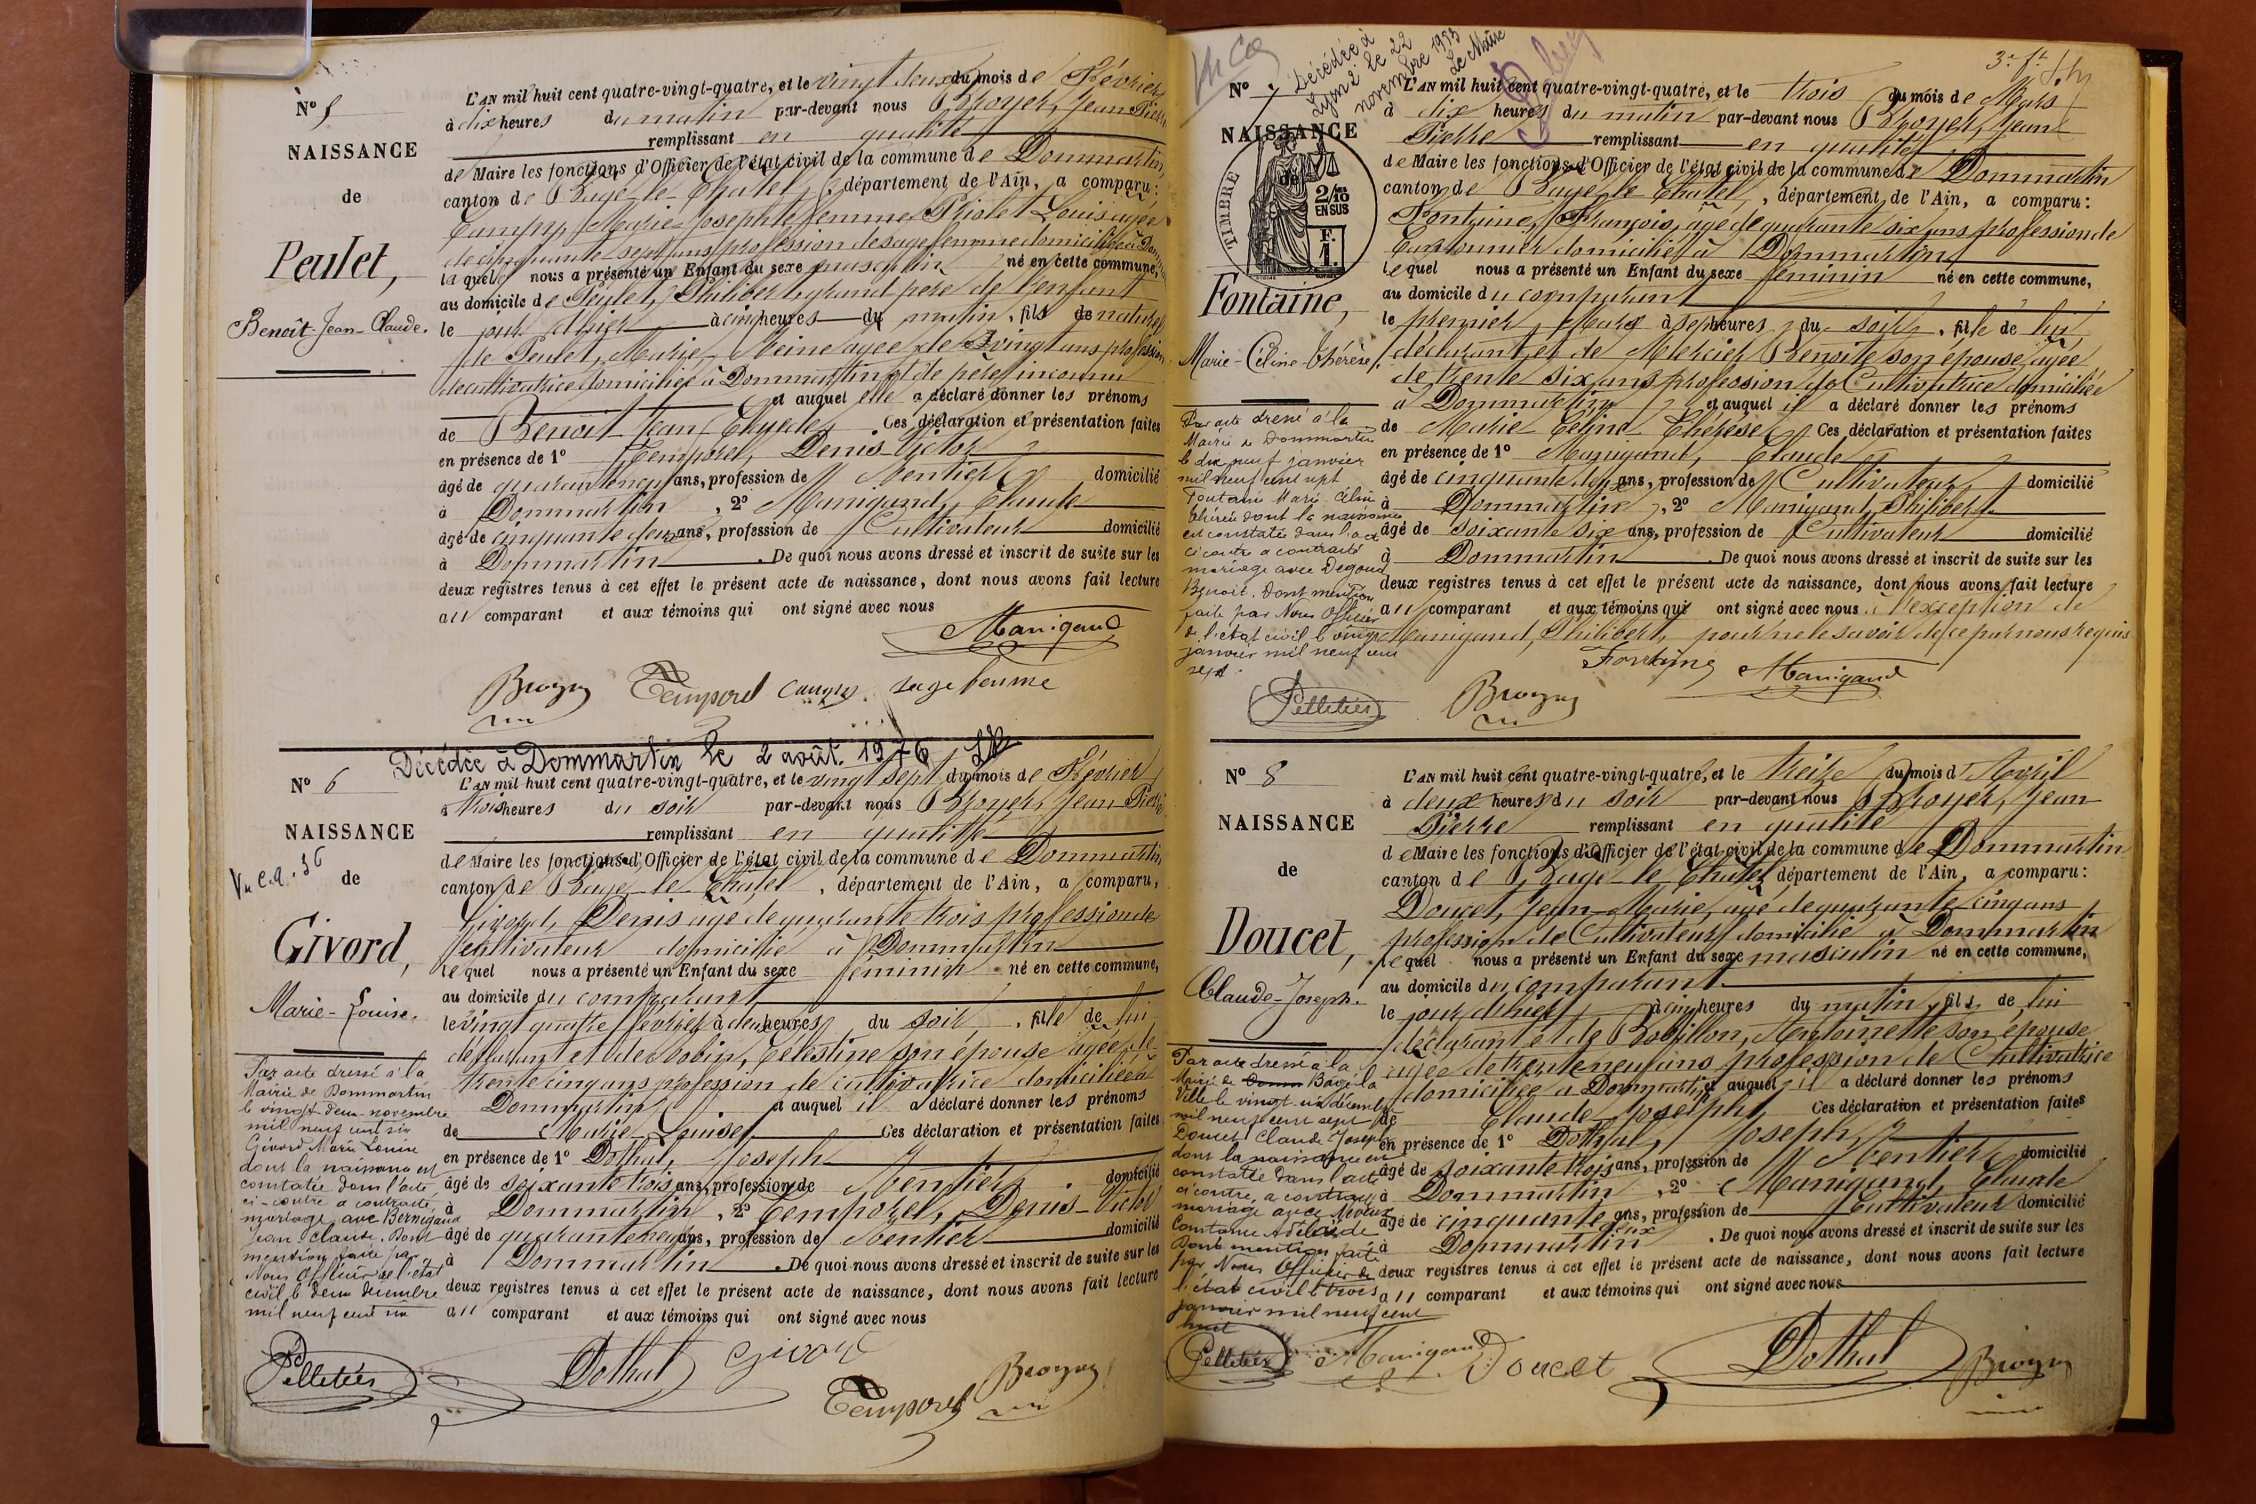 N° 5
NAISSANCE
de
Peulet,
Benoît-Jean-Claude.
L'AN mil huit cent quatre-vingt-quatre, et le vingt deux du mois de Février
à dix heures du matin par-devant nous Broyer, Jean Pierre
remplissant en qualité
de Maire les fonctions d'Officier de l'état civil de la commune de Dommartin
canton de Bagé-le-Châtel, département de l'Ain, a comparu :
Marie Josephte femme Louis agée
de cinquante sept ans profession de sage femme domiciliée à
laquelle nous a présenté un Enfant du sexe masculin né en cette commune,
au domicile de Peulet, Philibert, grand père de l'enfant
le jour d'hier à cinq heures du matin, fils de naturel
de Peulet, Marie, Reine agée de vingt ans profession
de cultivatrice domiciliée à Dommartin et de père inconnu
et auquel elle a déclaré donner les prénoms
de Benoit Jean Claude Ces déclaration et présentation faites
en présence de 1° Temporel, Denis-Victor
âgé de quarante neuf ans, profession de Rentier domicilié
à Dommartin, 2° Manigand, Claude
âgé de cinquante deux ans, profession de Cultivateur domicilié
à Dommartin. De quoi nous avons dressé et inscrit de suite sur les
deux registres tenus à cet effet le présent acte de naissance, dont nous avons fait lecture
au comparant et aux témoins qui ont signé avec nous
Manigand
Broyer Temporel sage femme
Décédée à Dommartin le 2 août 1976
N° 6
NAISSANCE
de
Givord,
Marie-Louise.
L'AN mil huit cent quatre-vingt-quatre, et le vingt sept du mois de Février
à trois heures du soir par-devant nous Broyer, Jean Pierre
remplissant en qualité
de Maire les fonctions d'Officier de l'état civil de la commune de Dommartin
canton de Bagé-le-Châtel, département de l'Ain, a comparu,
Givord, Denis agé de quarante trois profession de
cultivateur domicilié à Dommartin
lequel nous a présenté un Enfant du sexe féminin né en cette commune,
au domicile du comparant
le vingt quatre février à deux heures du soir, fille de lui
déclarant et de Robin, Célestine son épouse agée de
trente cinq ans profession de cultivatrice domiciliée à
Dommartin et auquel il a déclaré donner les prénoms
de Marie Louise Ces déclaration et présentation faites
en présence de 1° Dothal, Joseph
âgé de soixante trois ans, profession de Rentier domicilié
à Dommartin, 2° Temporel, Denis-Victor
âgé de quarante neuf ans, profession de Rentier domicilié
à Dommartin. De quoi nous avons dressé et inscrit de suite sur les
deux registres tenus à cet effet le présent acte de naissance, dont nous avons fait lecture
au comparant et aux témoins qui ont signé avec nous
Par acte dressé à la
Mairie de Dommartin
le vingt deux novembre
mil neuf cent six
Givord Marie Louise
dont la naissance est
constatée dans l'acte
ci-contre a contracté
mariage avec Bernigaud
Jean Claude. Dont
mention faite par
Nous Officier de l'état
civil le deux décembre
mil neuf cent six
Pelletier Dothal Givord
Temporel Broyer
3e ft
N° 7
Décédée à
Lyon 2 le 22
novembre 1973
Le Maire
NAISSANCE
TIMBRE
2/10
EN SUS
F.
1.
Fontaine,
Marie-Céline-Thérèse.
L'AN mil huit cent quatre-vingt-quatre, et le trois du mois de Mars
à dix heures du matin par-devant nous Broyer, Jean
Pierre remplissant en qualité
de Maire les fonctions d'Officier de l'état civil de la commune de Dommartin
canton de Bagé-le-Châtel, département de l'Ain, a comparu :
Fontaine, François, agé de quarante six ans profession de
Cantonnier domicilié à Dommartin
lequel nous a présenté un Enfant du sexe féminin né en cette commune,
au domicile du comparant
le premier Mars à sept heures du soir, fille de lui
déclarant et de Mercier Benoite son épouse agée
de trente six ans profession de Cultivatrice domiciliée
à Dommartin et auquel il a déclaré donner les prénoms
de Marie Céline Thérèse Ces déclaration et présentation faites
en présence de 1° Manigand, Claude
âgé de cinquante deux ans, profession de Cultivateur domicilié
à Dommartin, 2° Manigand, Philibert
âgé de soixante six ans, profession de Cultivateur domicilié
à Dommartin De quoi nous avons dressé et inscrit de suite sur les
deux registres tenus à cet effet le présent acte de naissance, dont nous avons fait lecture
au comparant et aux témoins qui ont signé avec nous à l'exception de
Manigand, Philibert, pour ne le savoir de ce par nous requis
Par acte dressé à la
Mairie de Dommartin
le dix neuf janvier
mil neuf cent sept
Fontaine Marie Céline
Thérèse dont la naissance
est constatée dans l'acte
ci contre a contracté
mariage avec Degoud
Benoit. Dont mention
faite par Nous Officier
de l'état civil le vingt
janvier mil neuf cent
sept.
Fontaine Manigand
Pelletier Broyer
N° 8
NAISSANCE
de
Doucet,
Claude-Joseph.
L'AN mil huit cent quatre-vingt-quatre, et le treize du mois d'Avril
à deux heures du soir par-devant nous Broyer, Jean
Pierre remplissant en qualité
de Maire les fonctions d'Officier de l'état civil de la commune de Dommartin
canton de Bagé-le-Châtel département de l'Ain, a comparu :
Doucet, Jean-Marie, agé de quarante cinq ans,
profession de Cultivateur domicilié à Dommartin
lequel nous a présenté un Enfant du sexe masculin né en cette commune,
au domicile du comparant
le jour d'hier à cinq heures du matin, fils de lui
déclarant et de Robillon, Antoinette son épouse
agée de trente neuf ans profession de Cultivatrice
domiciliée à Dommartin et auquel il a déclaré donner les prénoms
de Claude Joseph Ces déclaration et présentation faites
en présence de 1° Dothal, Joseph
âgé de soixante trois ans, profession de Rentier domicilié
à Dommartin, 2° Manigand, Claude
âgé de cinquante deux ans, profession de Cultivateur domicilié
à Dommartin. De quoi nous avons dressé et inscrit de suite sur les
deux registres tenus à cet effet le présent acte de naissance, dont nous avons fait lecture
au comparant et aux témoins qui ont signé avec nous
Par acte dressé à la
Mairie de Bagé la
Ville le vingt un décembre
mil neuf cent sept
Doucet Claude Joseph
dont la naissance est
constatée dans l'acte
ci contre, a contracté
mariage avec
Constance Adélaïde
Dont mention faite
par Nous Officier de
l'état civil le trois
janvier mil neuf cent
huit
Pelletier Manigand Doucet Dothal Broyer